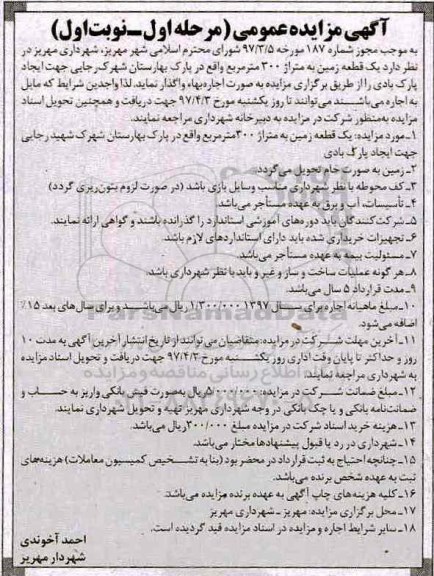 آگهی مزایده عمومی (مرحله اول ـ نوبت اول)
به موجب مجوز شماره ۱۸۷ مورخه ۹۷/۳/۵ شورای محترم اسلامی شهر مهریز، شهرداری مهریز در
نظر دارد یک قطعه زمین به متراژ ۳۰۰ مترمربع واقع در پارک بهارستان شهرک رجایی جهت ایجاد
پارک بادی را از طریق برگزاری مزایده به صورت اجاره بهاء واگذار نماید. لذا واجدین شرایط که مایل
به اجاره می‌باشند می‌توانند تا روز یکشنبه مورخ ۹۷/۴/۳ جهت دریافت و همچنین تحویل اسناد
مزایده به‌منظور شرکت در مزایده به دبیرخانه شهرداری مراجعه نمایند.
۱ـ مورد مزایده: یک قطعه زمین به متراژ ۳۰۰ مترمربع واقع در پارک بهارستان شهرک شهید رجایی
جهت ایجاد پارک بادی
۲ـ زمین به صورت خام تحویل می‌گردد.
۳ـ کف محوطه با نظر شهرداری مناسب وسایل بازی باشد (در صورت لزوم بتون‌ریزی گردد)
۴ـ تأسیسات، آب و برق به عهده مستأجر می‌باشد.
۵ـ شرکت‌کنندگان باید دوره‌های آموزشی استاندارد را گذرانده باشند و گواهی ارائه نمایند.
۶ـ تجهیزات خریداری شده باید دارای استانداردهای لازم باشد.
۷ـ مسئولیت بیمه به عهده مستأجر می‌باشد.
۸ـ هر گونه عملیات ساخت و ساز و غیر و باید با نظر شهرداری باشد.
۹ـ مدت قرارداد ۵ سال می‌باشد.
۱۰ـ مبلغ ماهیانه اجاره برای سال ۱۳۹۷ ۱/۳۰۰/۰۰۰ ریال می‌باشد و برای سال‌های بعد ۱۵٪
اضافه می‌شود.
۱۱ـ آخرین مهلت شرکت در مزایده: متقاضیان می‌توانند از تاریخ انتشار آخرین آگهی به مدت ۱۰
روز و حداکثر تا پایان وقت اداری روز یکشنبه مورخ ۹۷/۴/۳ جهت دریافت و تحویل اسناد مزایده
به شهرداری مراجعه نمایند.
۱۲ـ مبلغ ضمانت شرکت در مزایده: ریال به صورت فیش بانکی واریز به حساب و
ضمانت‌نامه بانکی و یا چک بانکی در وجه شهرداری مهریز تهیه و تحویل شهرداری نمایند.
۱۳ـ هزینه خرید اسناد شرکت در مزایده مبلغ ۳۰۰/۰۰۰ ریال می‌باشد.
۱۴ـ شهرداری در رد یا قبول پیشنهادها مختار می‌باشد.
۱۵ـ چنانچه احتیاج به ثبت قرارداد در محضر بود (بنا به تشخیص کمیسیون معاملات) هزینه‌های
ثبت به عهده شخص برنده می‌باشد.
۱۶ـ کلیه هزینه‌های چاپ آگهی به عهده برنده مزایده می‌باشد.
۱۷ـ محل برگزاری مزایده: مهریز ـ شهرداری مهریز
۱۸ـ سایر شرایط اجاره و مزایده در اسناد مزایده قید گردیده است.
احمد آخوندی
شهردار مهریز
ParsNamadData